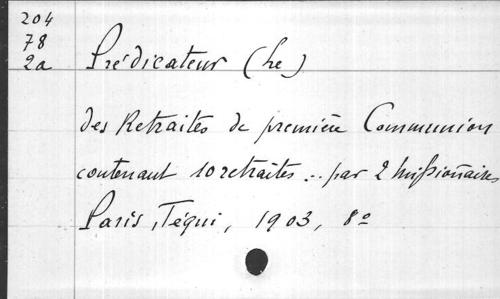 204
78
2a Prédicateur (Le)
des Retraites de première Communion
contenant 10 retraites ... par 2 Missionnaires
Paris, Téqui, 1903, 8º